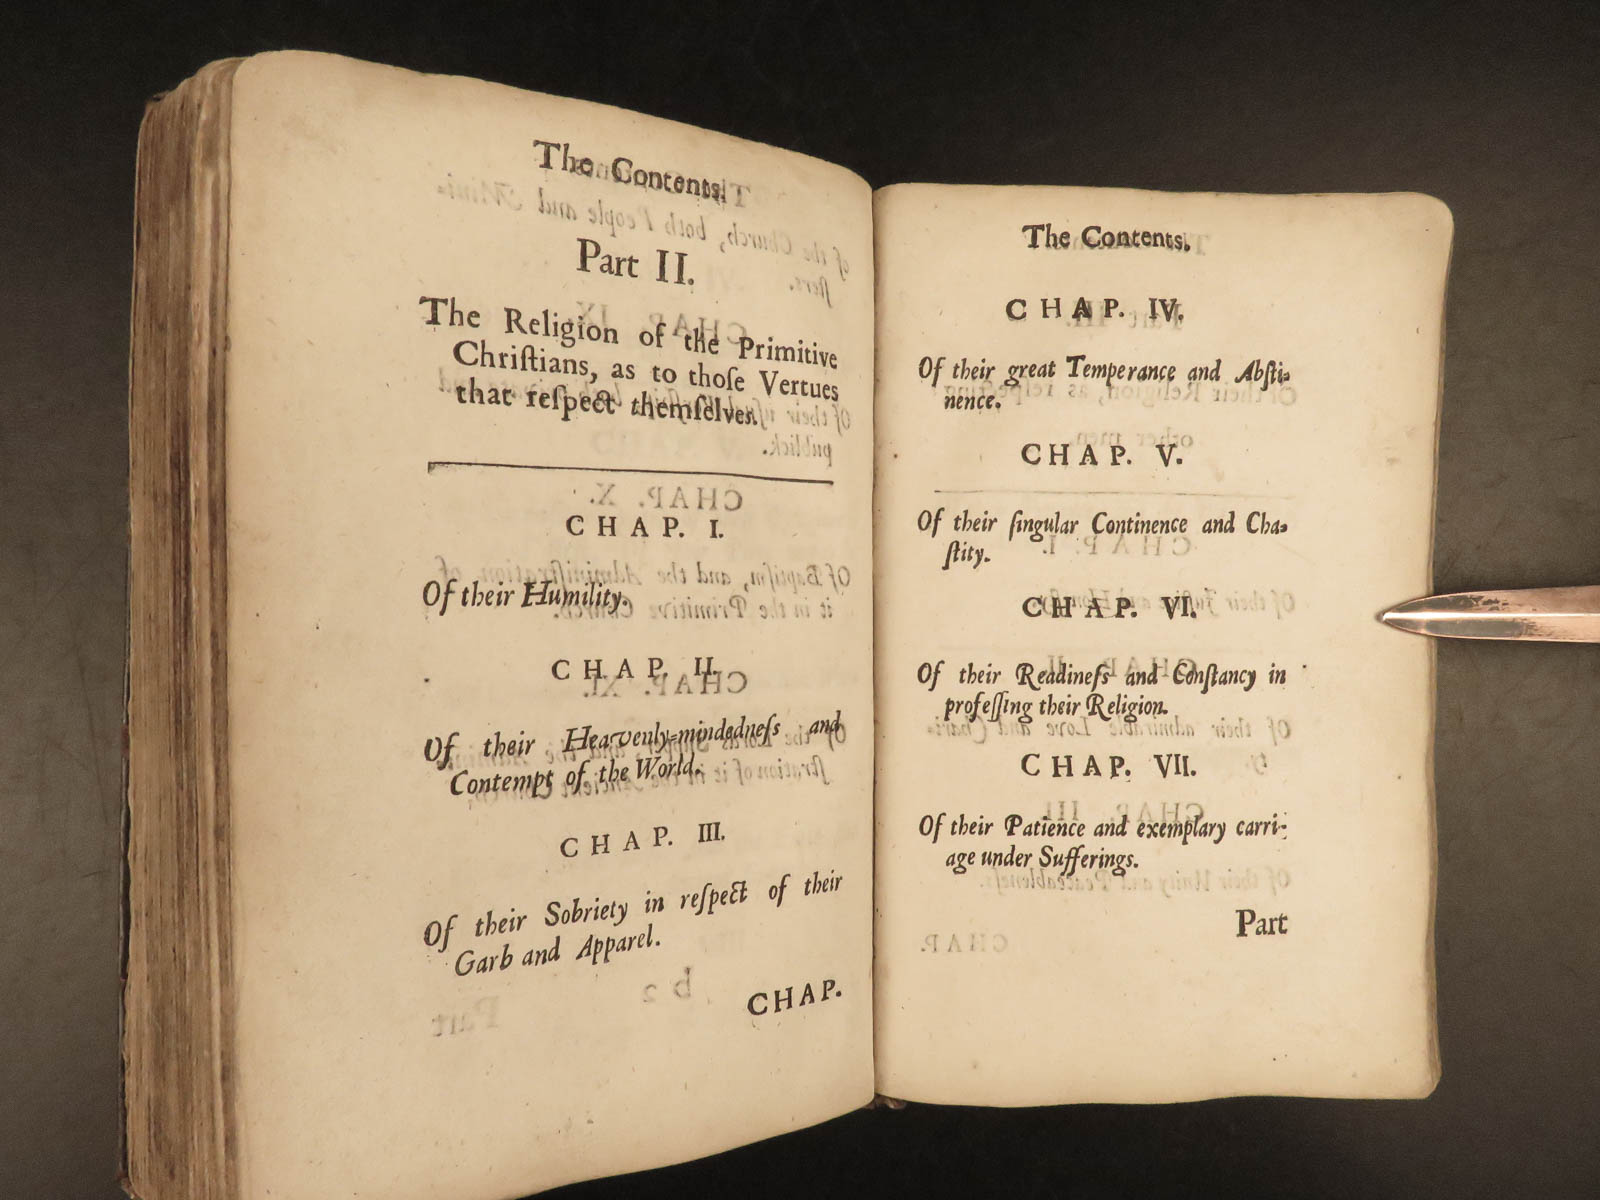 The Contents.
Part II.
The Religion of the Primitive
Chriſtians, as to thoſe Vertues
that reſpect themſelves.
CHAP. I.
Of their Humility.
CHAP. II.
Of their Heavenly-mindedneſs and
Contempt of the World.
CHAP. III.
Of their Sobriety in reſpect of their
Garb and Apparel.
CHAP.
The Contents.
CHAP. IV.
Of their great Temperance and Abſti-
nence.
CHAP. V.
Of their ſingular Continence and Cha-
ſtity.
CHAP. VI.
Of their Readineſs and Conſtancy in
profeſſing their Religion.
CHAP. VII.
Of their Patience and exemplary carri-
age under Sufferings.
Part